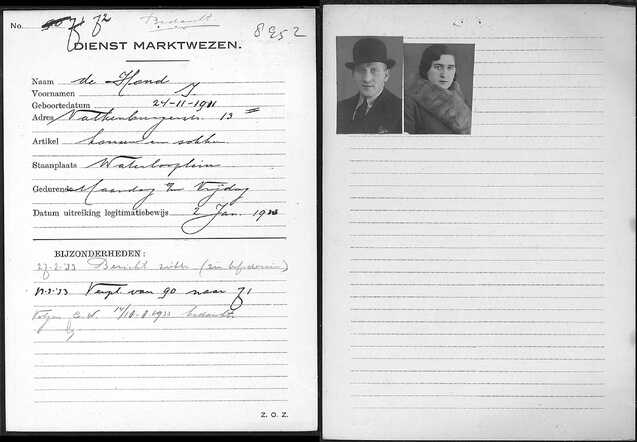 No. 71 72 Bedankt 8952
DIENST MARKTWEZEN.
Naam de Hond
Voornamen J
Geboortedatum 24-11-1911
Adres Valkenburgerstr. 13
Artikel kousen en sokken
Staanplaats Waterlooplein
Gedurende Maandag t/m Vrijdag
Datum uitreiking legitimatiebewijs 2 Jan. 1933
BIJZONDERHEDEN:
27-2-33 Bericht
Verpl. van 90 naar 71
Volgens 1933 bedankt.
Z. O. Z.